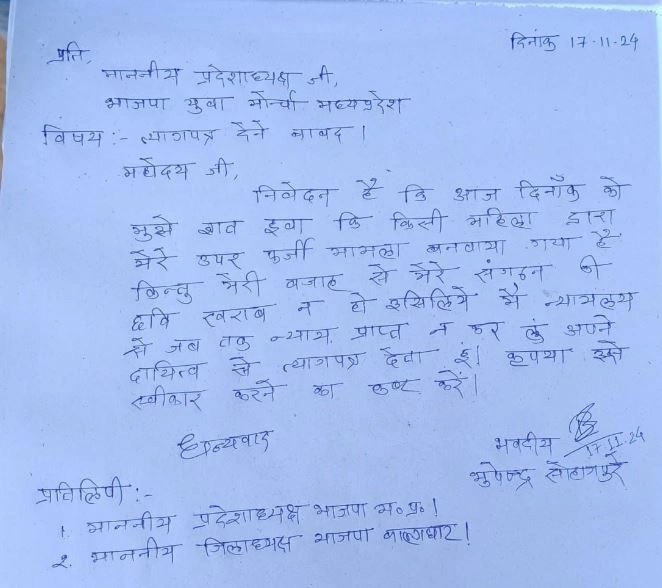 दिनांक 17-11-24
प्रति,
माननीय प्रदेशाध्यक्ष जी,
भाजपा युवा मोर्चा मध्यप्रदेश
विषय :- त्यागपत्र देने बाबद ।
महोदय जी,
निवेदन है कि आज दिनाँक को
मुझे ज्ञात हुवा कि किसी महिला द्वारा
मेरे उपर फर्जी मामला बनवाया गया है
किन्तु मेरी वजाह से मेरे संगठन की
छवि खराब न हो इसिलिये मै न्यायलय
से जब तक न्याय प्राप्त न कर लुं अपने
दायित्व से त्यागपत्र देता हुं। कृपया इसे
स्वीकार करने का कष्ट करें।
धन्यवाद
भवदीय
17.11.24
भुपेन्द्र सोहागपुरे
प्रतिलिपी :-
1. माननीय प्रदेशाध्यक्ष भाजपा म०प्र० ।
2. माननीय जिलाध्यक्ष भाजपा बालाघाट ।